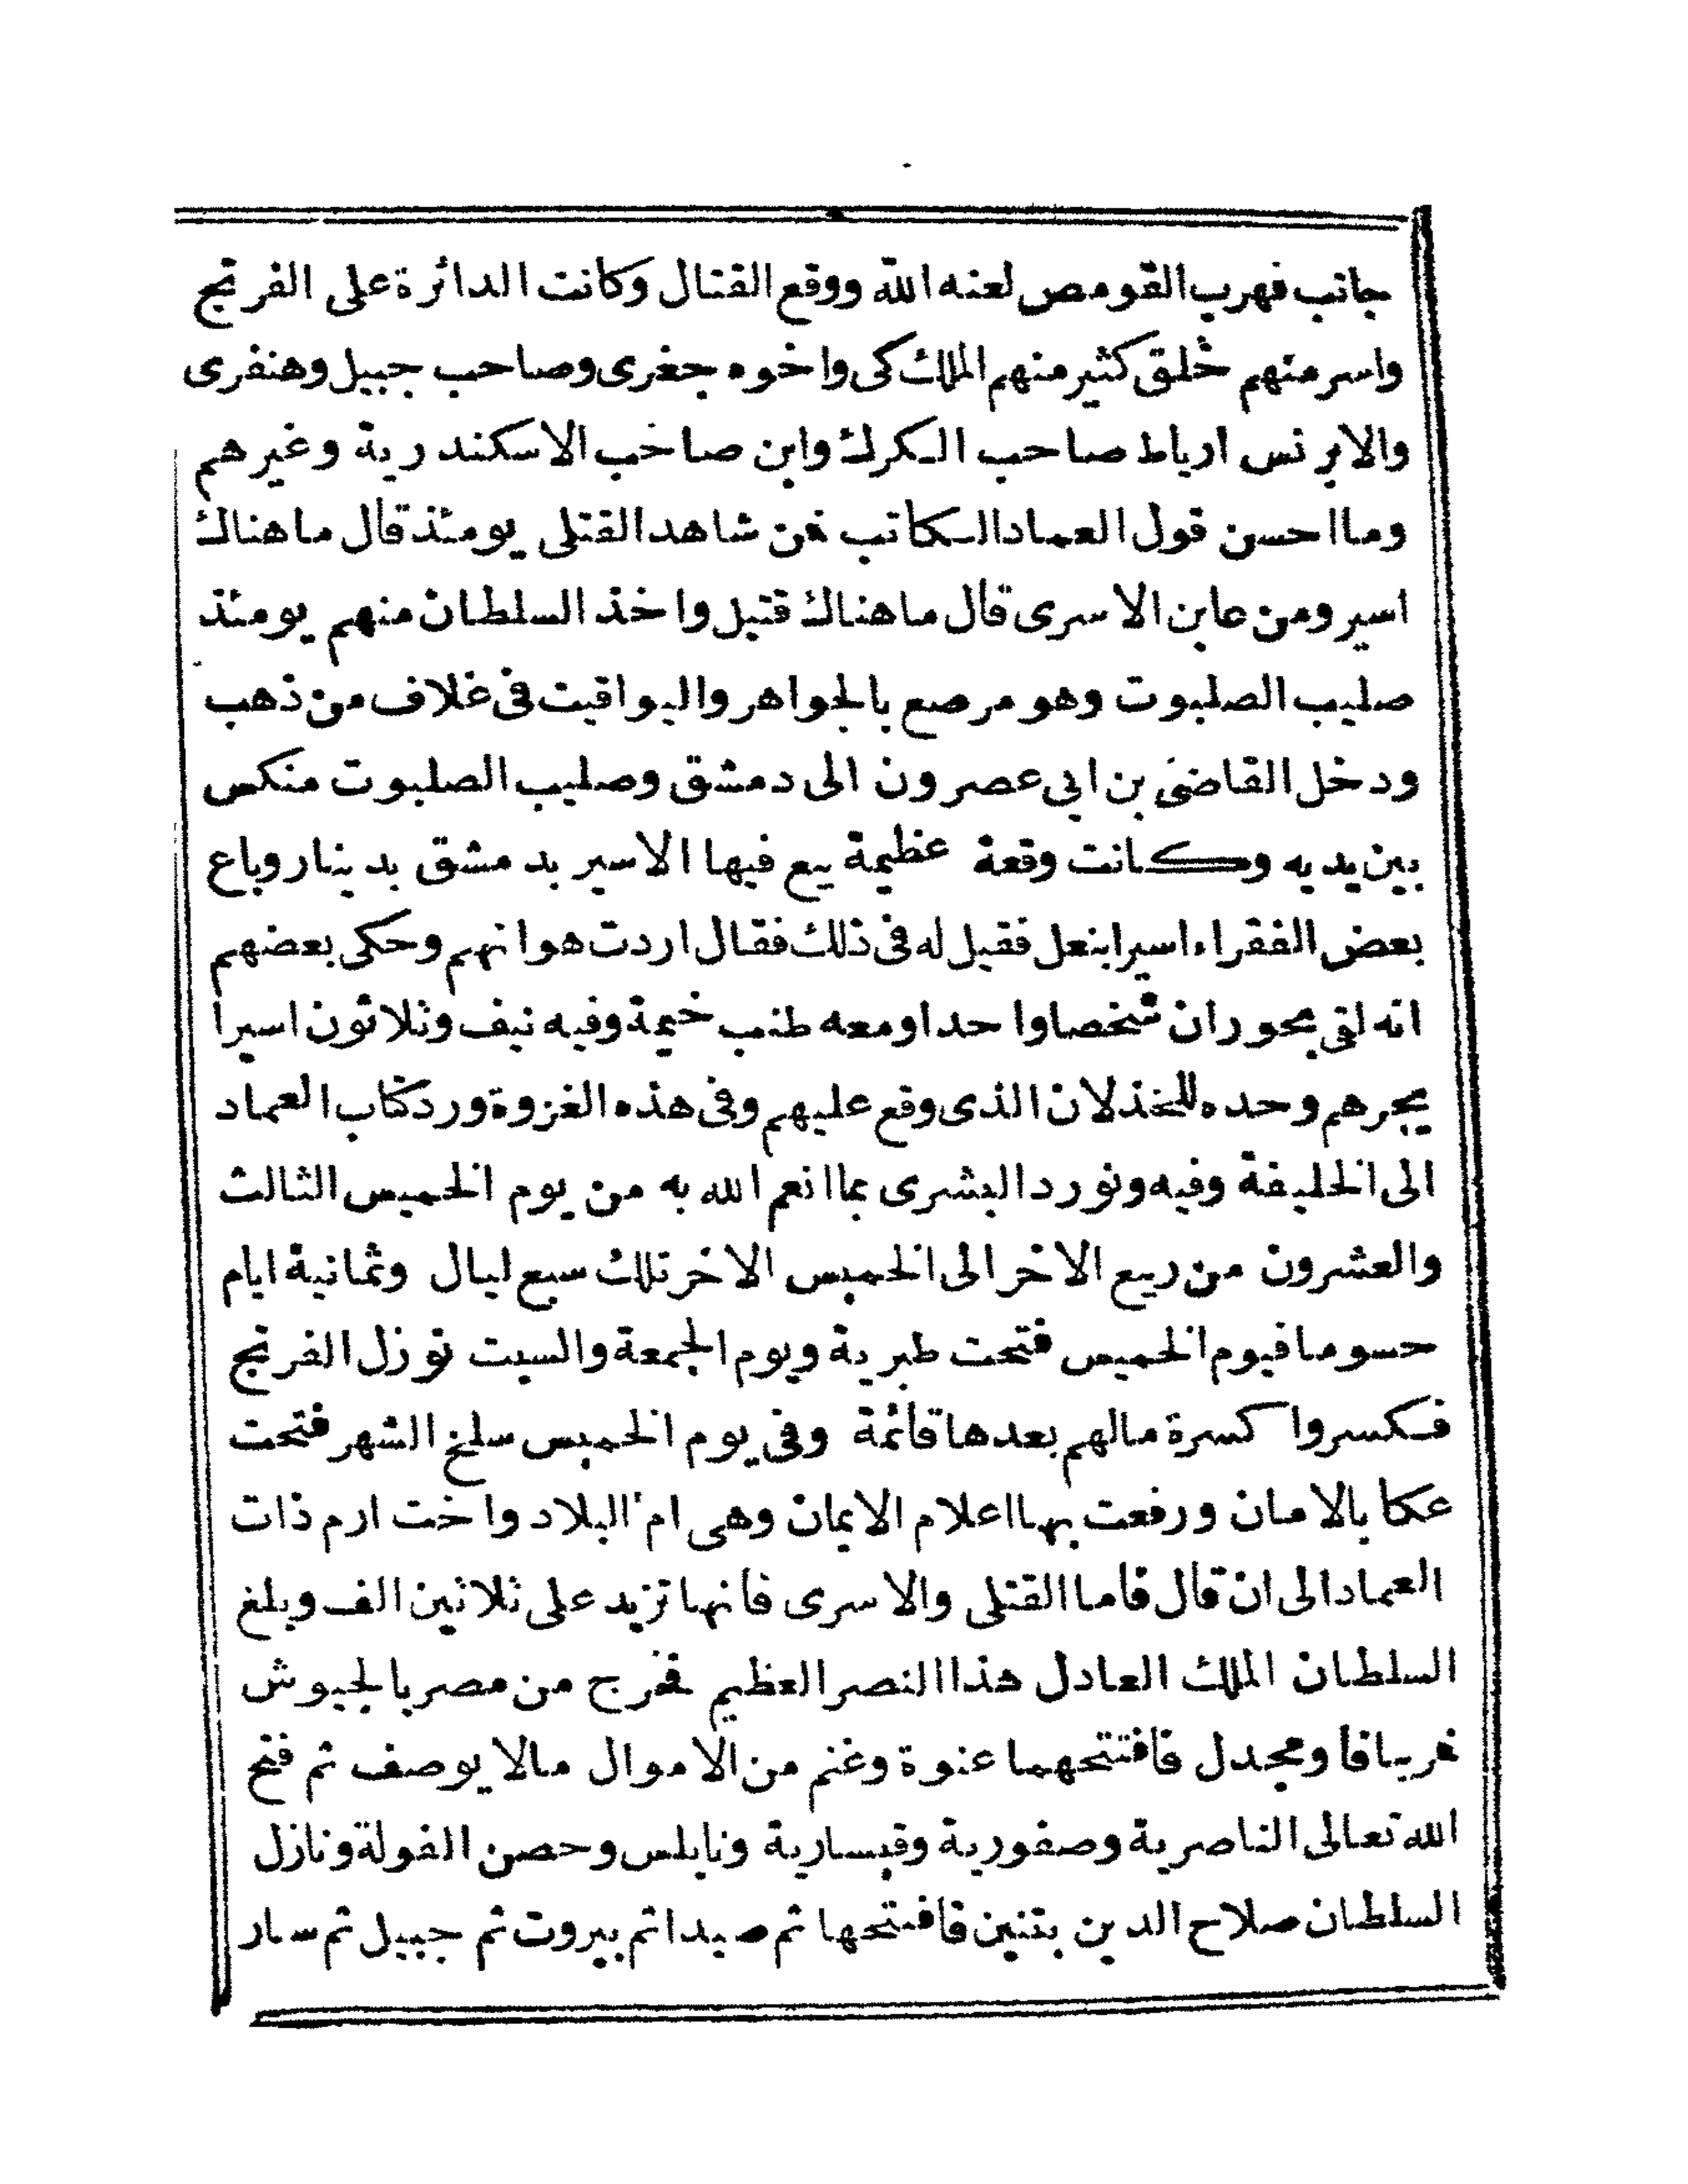 جانب فهرب القومص لعنه الله ووقع القتال وكانت الدائرة على الفرنج
واسر منهم خلق كثير منهم الملك كى واخوه جفرى وصاحب جبيل وهنفرى
والابرنس ارباط صاحب الكرك وابن صاحب الاسكندرية وغيرهم
وما احسن قول العماد الكاتب فمن شاهد القتلى يومئذ قال ما هناك
اسير ومن عاين الاسرى قال ما هناك قتيل واخذ السلطان منهم يومئذ
صليب الصلبوت وهو مرصع بالجواهر واليواقيت فى غلاف من ذهب
ودخل القاضى بن ابى عصرون الى دمشق وصليب الصلبوت منكس
بين يديه وكانت وقعة عظيمة بيع فيها الاسير بدمشق بدينار وباع
بعض الفقراء اسيرا بنعل فقيل له فى ذلك فقال اردت هوانهم وحكى بعضهم
انه لقى بحوران شخصا واحدا ومعه طنب خيمة وفيه نيف وثلاثون اسيرا
يجرهم وحده للخذلان الذى وقع عليهم وفى هذه الغزوة ورد كتاب العماد
الى الخليفة وفيه ونورد البشرى بما انعم الله به من يوم الخميس الثالث
والعشرون من ربيع الاخر الى الخميس الاخر تلك سبع ليال وثمانية ايام
حسوما فيوم الخميس فتحت طبرية ويوم الجمعة والسبت نوزل الفرنج
فكسروا كسرة مالهم بعدها قائمة وفى يوم الخميس سلخ الشهر فتحت
عكا بالامان ورفعت بها اعلام الايمان وهى ام البلاد واخت ارم ذات
العماد الى ان قال فاما القتلى والاسرى فانها تزيد على ثلاثين الف وبلغ
السلطان الملك العادل هذا النصر العظيم فخرج من مصر بالجيوش
فمر بيافا ومجدل فافتتحهما عنوة وغنم من الاموال مالا يوصف ثم فتح
الله تعالى الناصرية وصفورية وقيسارية ونابلس وحصن الفولة ونازل
السلطان صلاح الدين بتنين فافتتحها ثم صيدا ثم بيروت ثم جبيل ثم سار